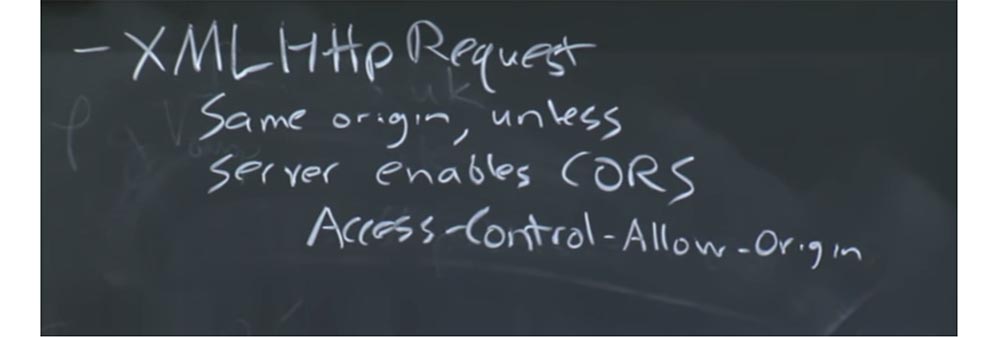 - XMLHttpRequest
Same origin, unless
server enables CORS
Access-Control-Allow-Origin